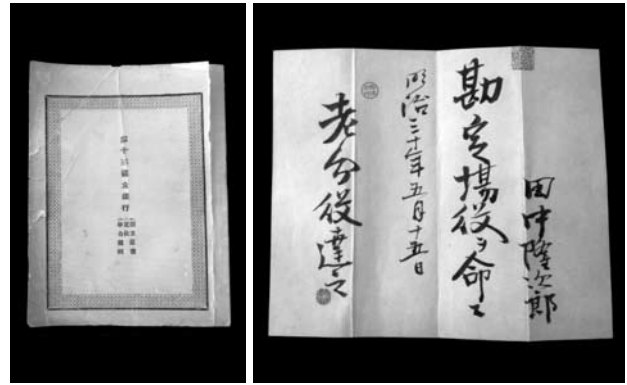 第十三國立銀行
田中隆次郎
勘定場役ヲ命ス
明治三十年五月十五日
老分役達之